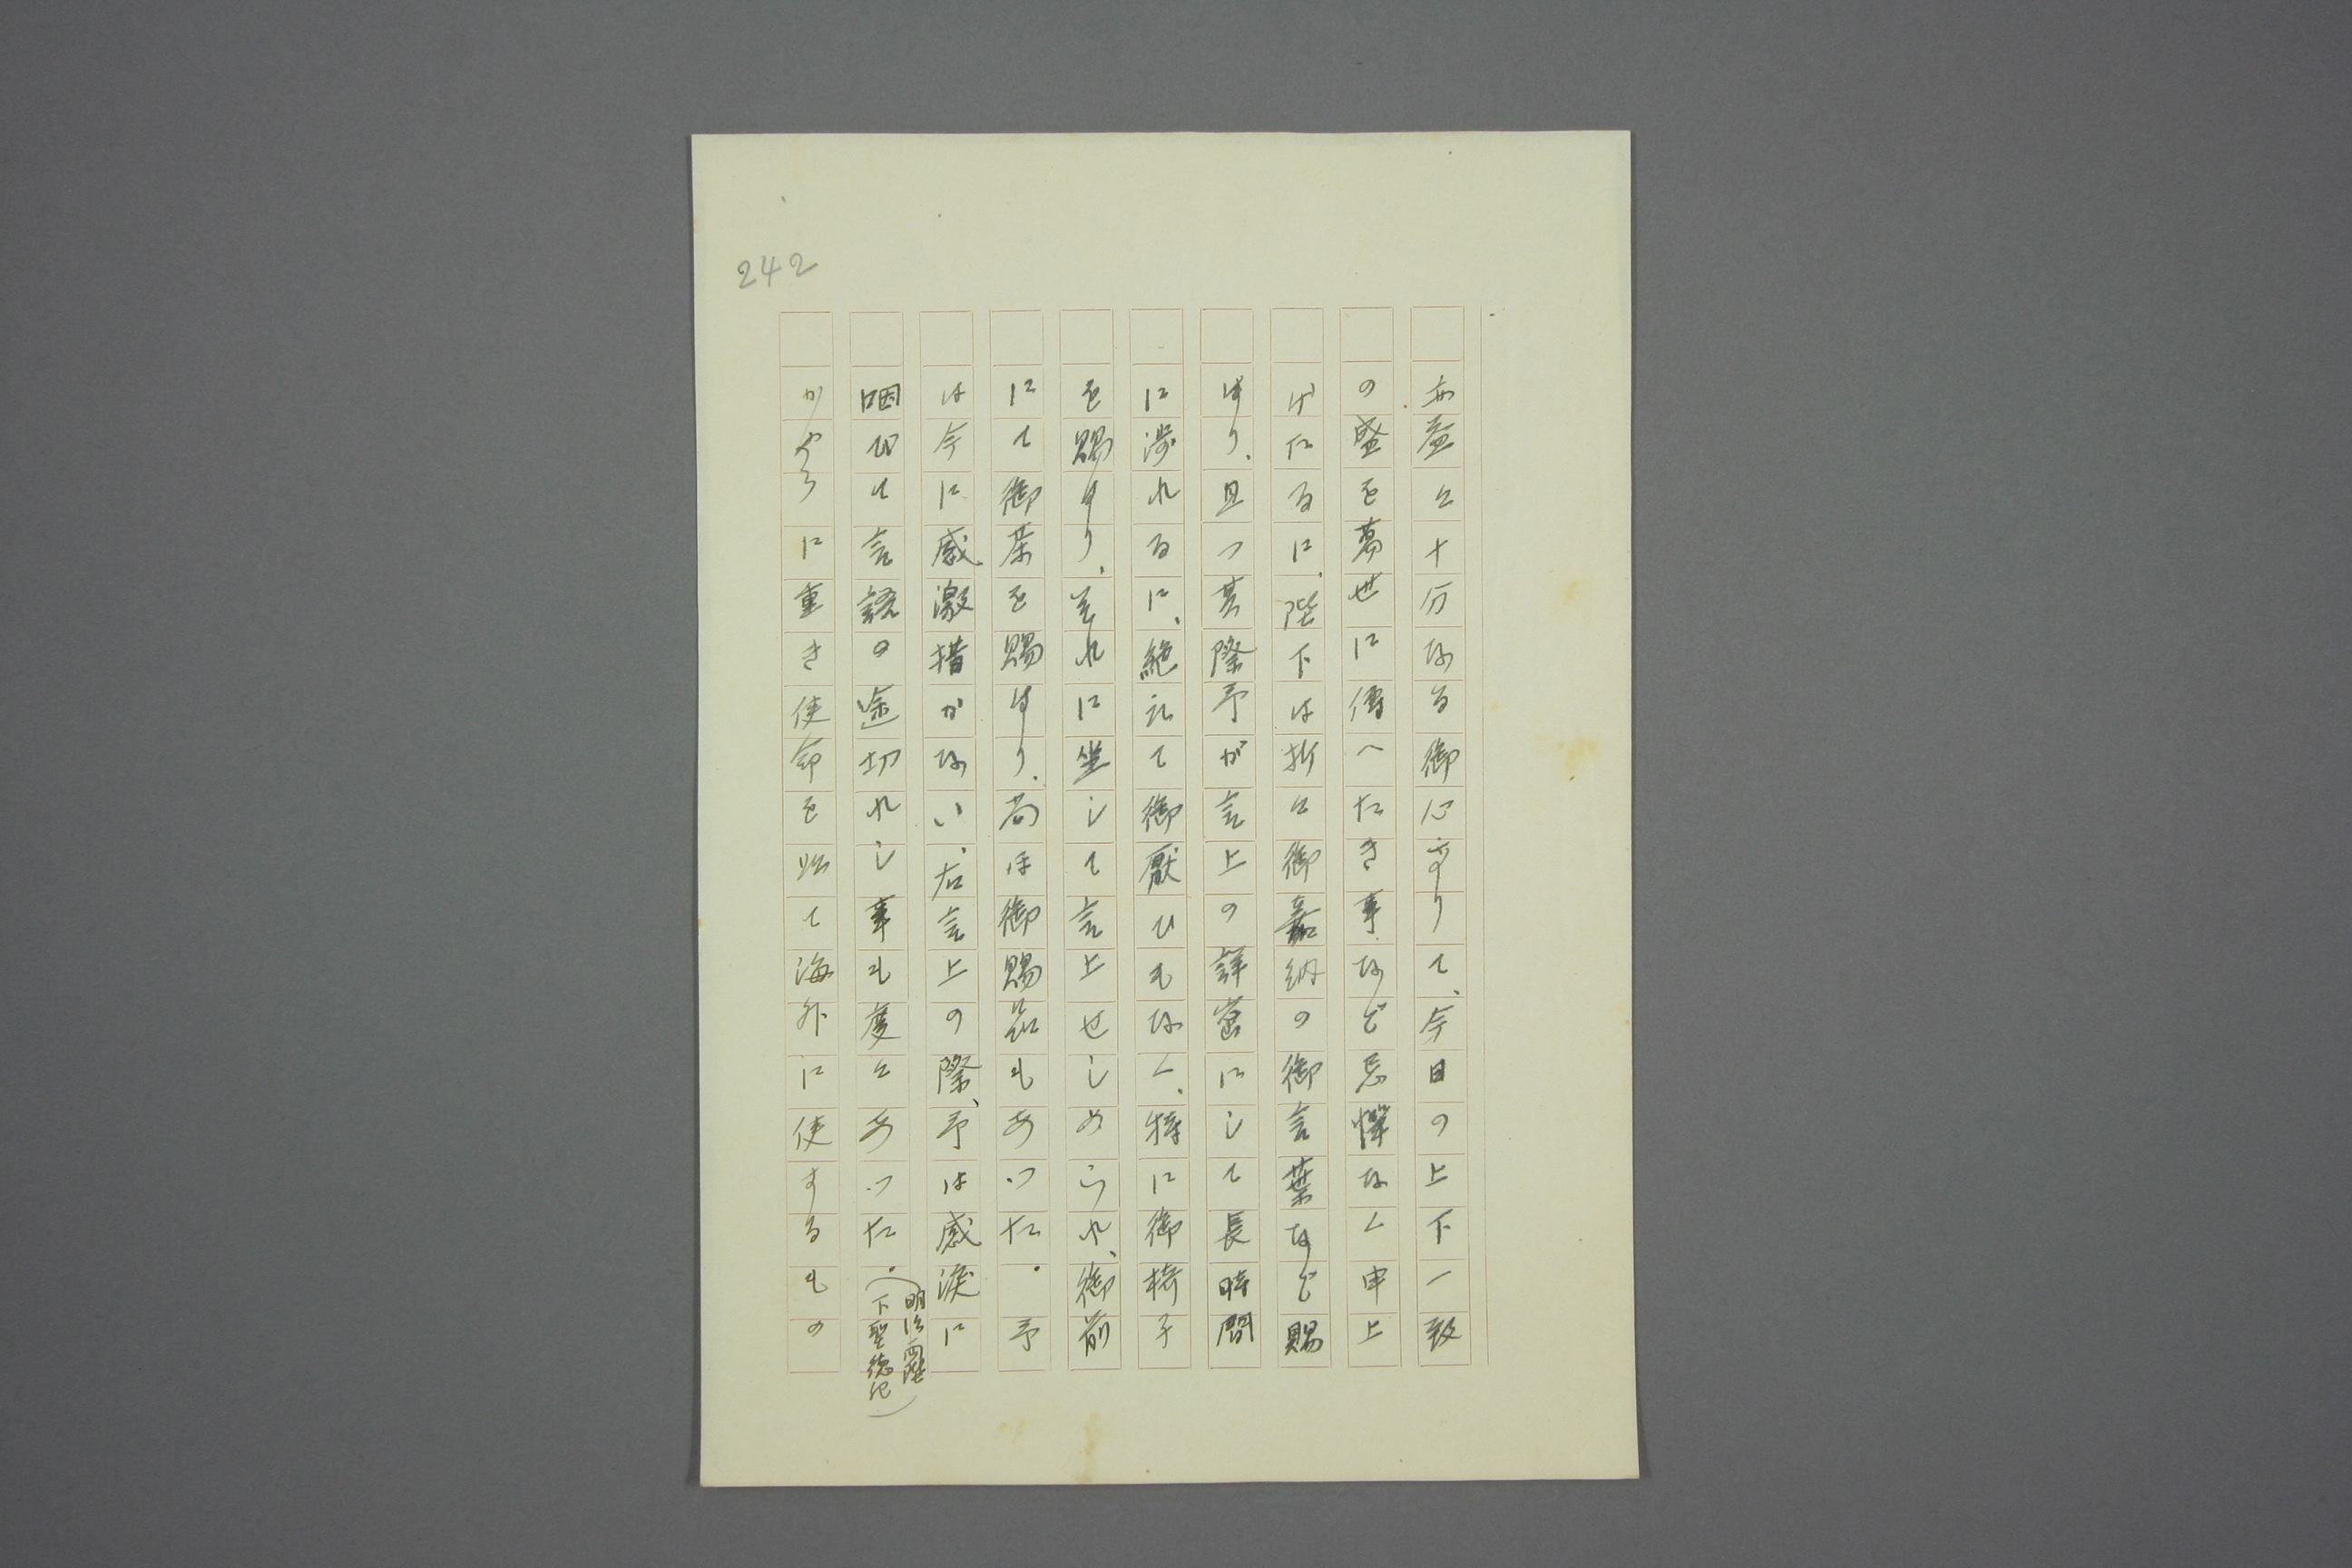 242
亦益々十分なる御心ありて、今日の上下一致
の盛を萬世に傳へたき事など忌憚なく申上
げたるに、陛下は折々御嘉納の御言葉など賜
はり、且つ其際予が言上の詳密にして長時間
に渉れるに、絶えて御厭ひもなく、特に御椅子
を賜はり、それに坐して言上せしめられ、御前
にて御茶を賜はり、尚ほ御賜品もあつた。予
は今に感激措かない、右言上の際、予は感淚に
咽びて言語の途切れし事も度々あつた。(明治両陛
下聖徳記)
かやうに重き使命を
て海外に使するもの